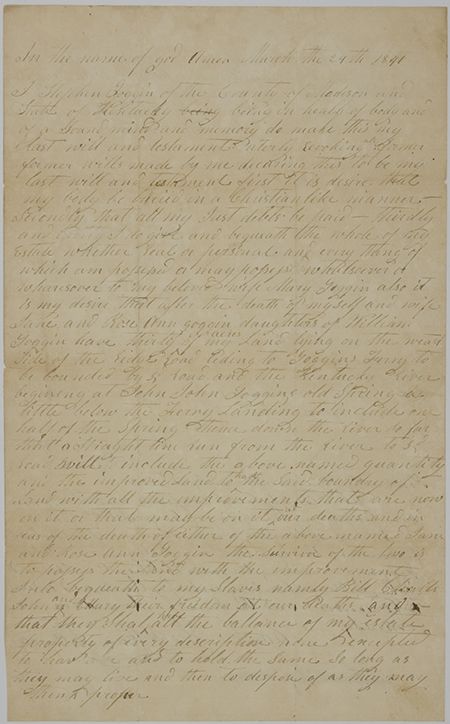 In the name of god Amen March the 24th 1841
I Stephen Goggin of the County of Madison and
State of Kentucky being being in health of body and
of a Sound mind and memory do make this my
last will and testament Revoking former
former wills made by me decalring this to be my
last will and testament first it is desire that
my body be buried in a Christianlike manner
Secondly that all my Just debts be paid - thirdly
and I do give and bequeath the whole of my
Estate whether Real or personal and every thing of
which am possess or may possess whatsoever or
whansover to my beloved wife Mary Goggin also it
is my desire that after the death of myself and wife
Jane and Rose Ann goggin daughters of William
Goggin have thirty acres of my Land lying on the west
Side of the Ridge Road liding to Goggins ferry to
be bounded by sd road and the Kentucky River
begining at John Goggins old Spring a
little below the ferry Landing to include one
half of the Spring thence down the River so far
that a Straight line run from the River to sd
road will include the above named quantity
and the improved Land the Said boundry of
Land with all the improvements that are now
on it or that may be on it our deaths and in
case of the death of either of the above named Jane
and Rose Ann Goggin the Surviver of the two is
to possess the Land with the improvements
I also bequeath to my Slaves namely Bill
John and their freedom at our deaths and
that they Shall the ballance of my Estate
property of every description excepted
to have and to hold the Same so long as
they may live and then to dispose of as they may
think proper